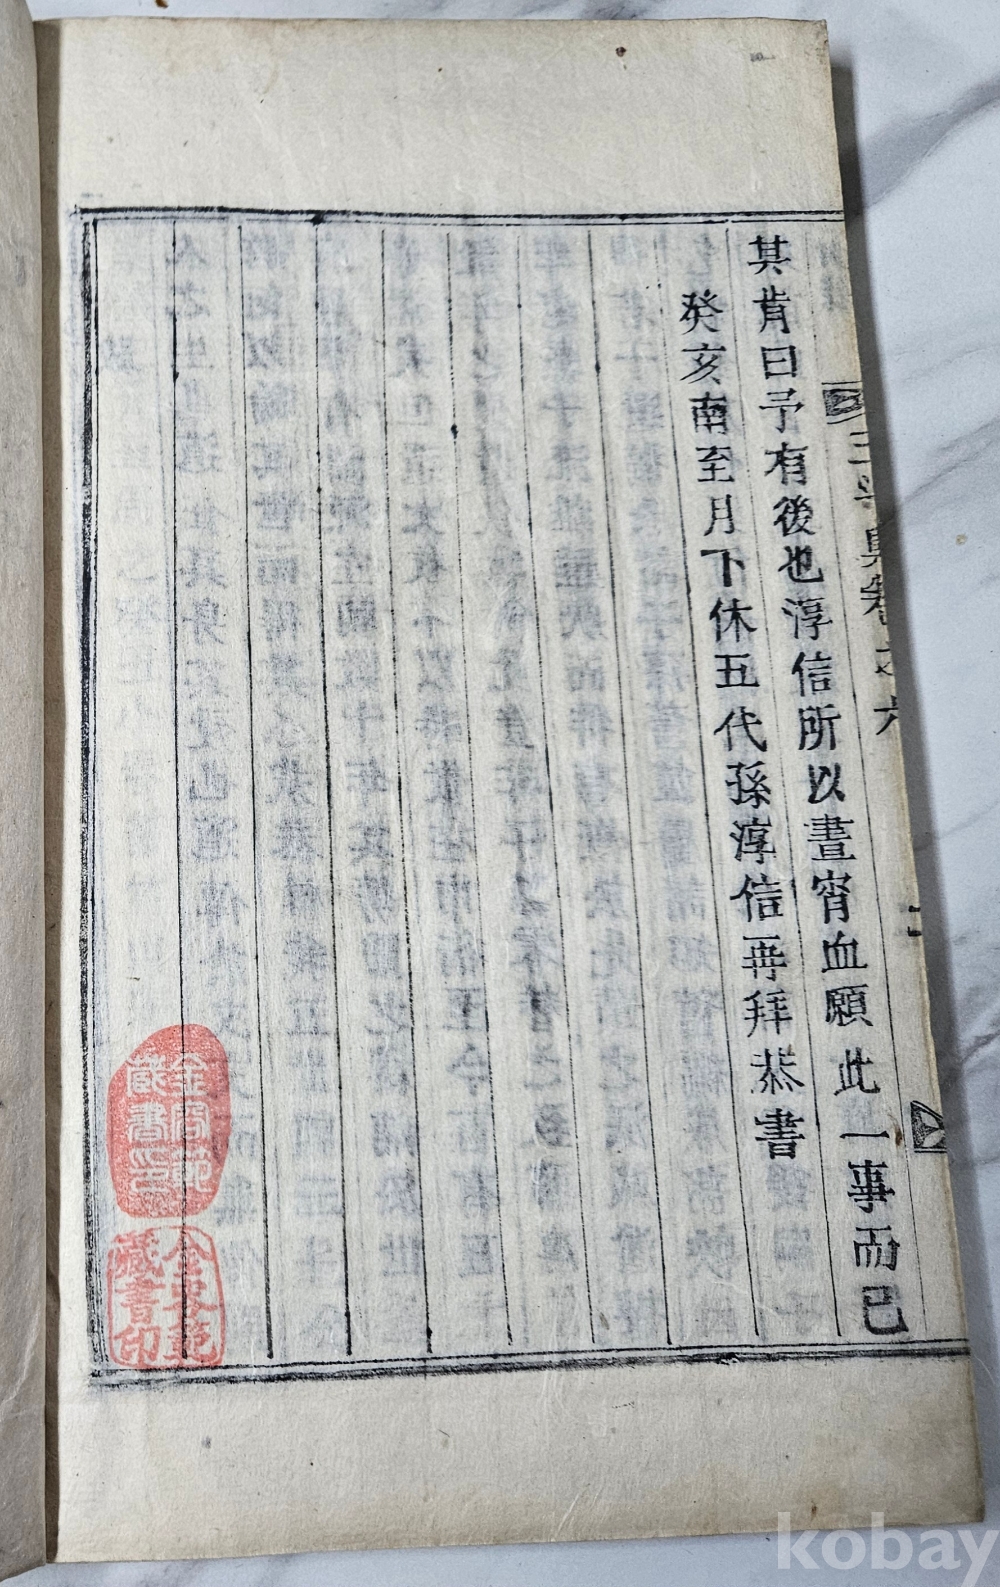 其肯曰予有後也淳信所以晝宵血願此一事而已
癸亥南至月下休五代孫淳信再拜恭書
卷之六
藏書印
kobay